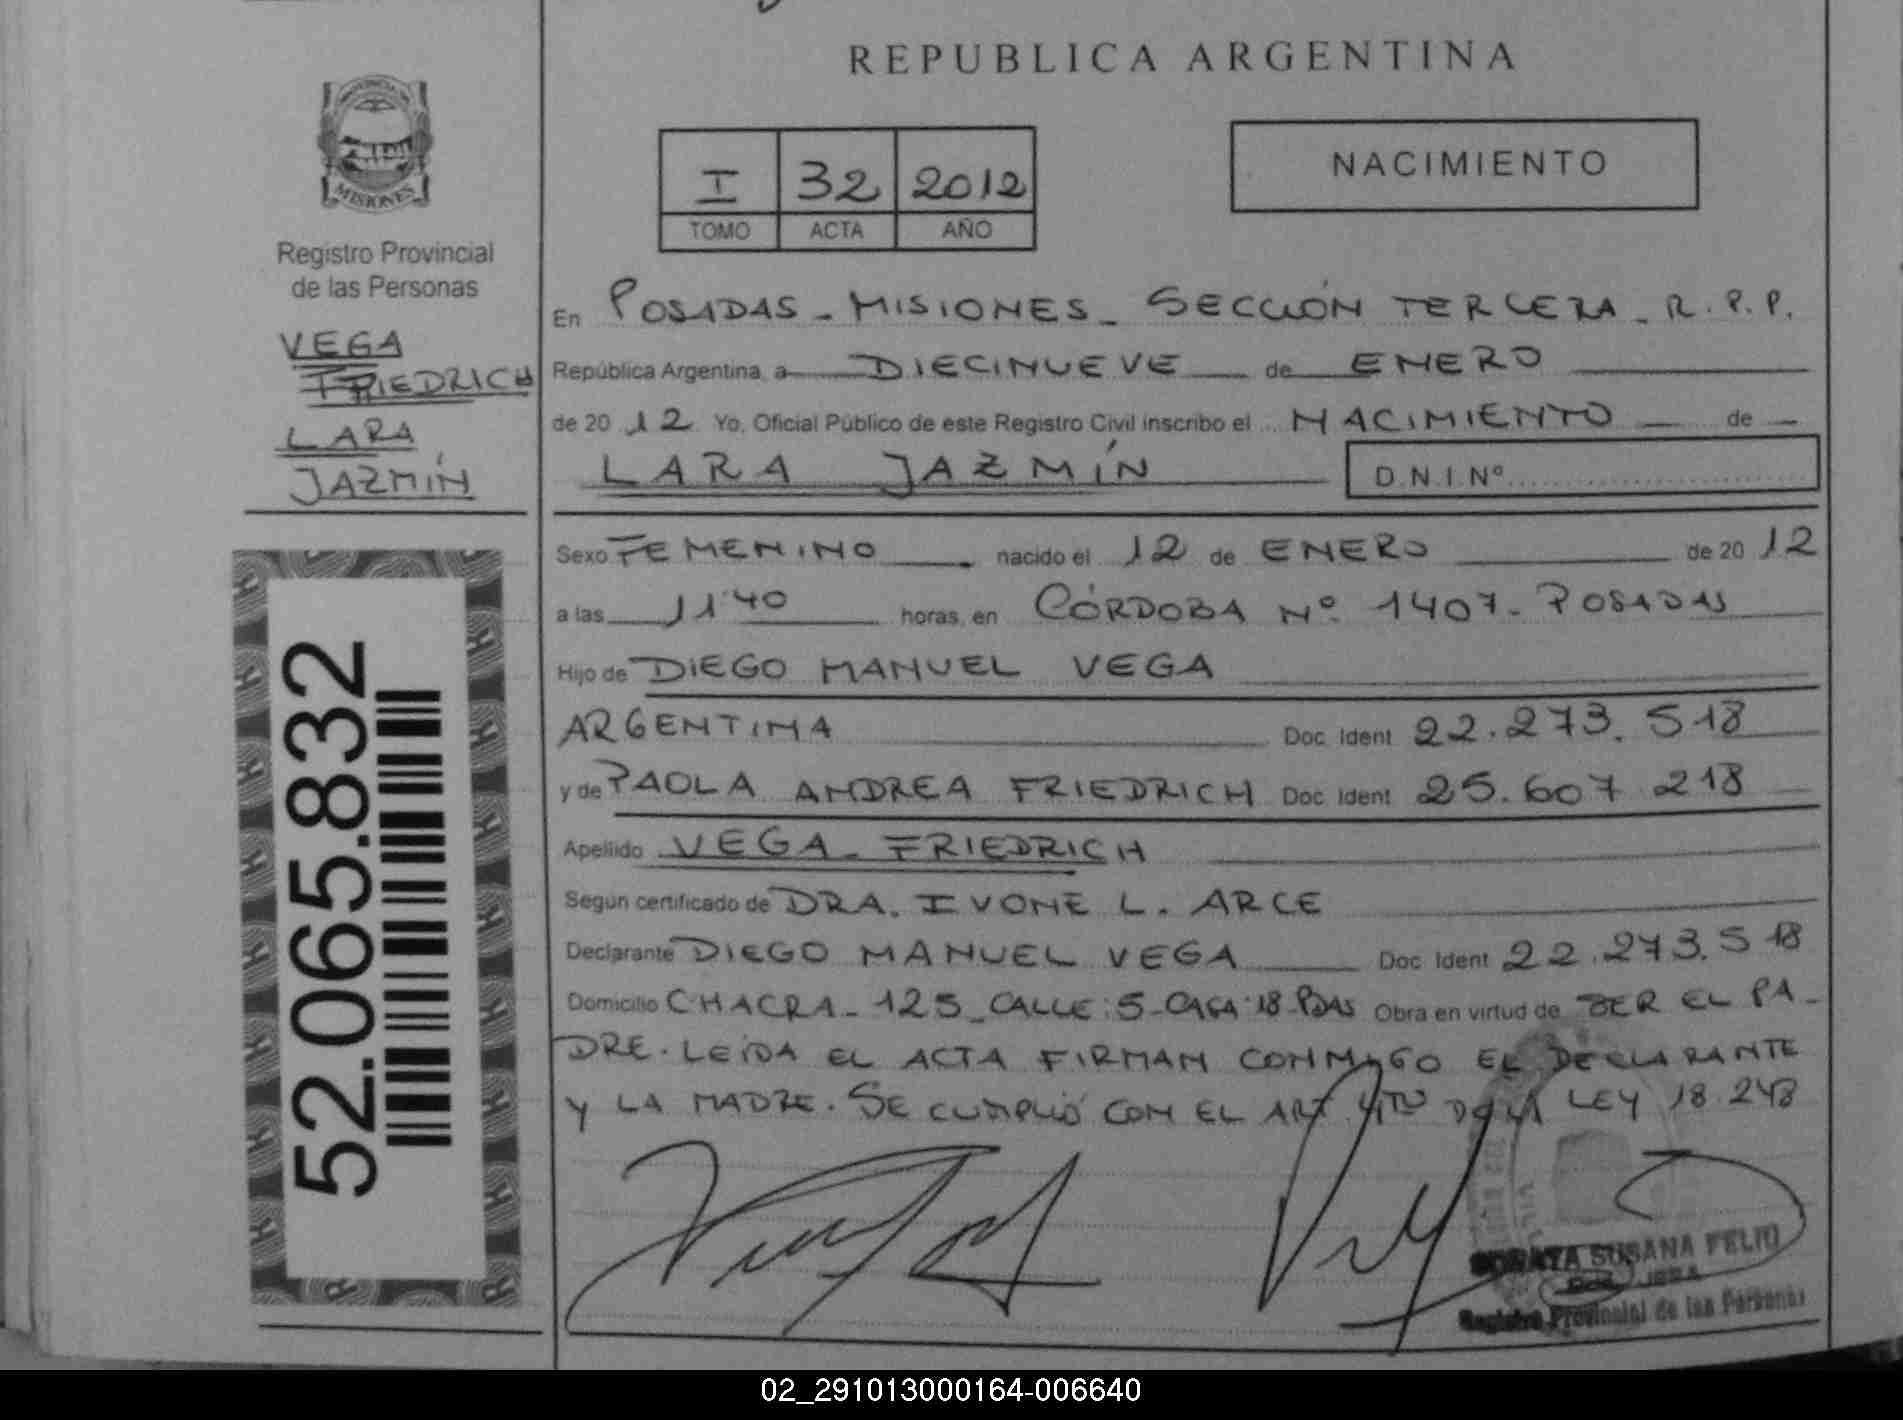 REPUBLICA ARGENTINA
MISIONES
Registro Provincial
de las Personas
VEGA
FRIEDRICH
LARA
JAZMÍN
52.065.832
I 32 2012
TOMO ACTA AÑO
NACIMIENTO
En POSADAS - MISIONES - SECCIÓN TERCERA - R.P.P.
República Argentina, a DIECINUEVE de ENERO
de 20 12 Yo, Oficial Público de este Registro Civil inscribo el NACIMIENTO de
LARA JAZMÍN
D.N.I.Nº
Sexo FEMENINO nacido el 12 de ENERO de 20 12
a las 11:40 horas, en CÓRDOBA Nº 1407 - POSADAS
Hijo de DIEGO MANUEL VEGA
ARGENTINA Doc Ident 22.273.518
y de PAOLA ANDREA FRIEDRICH Doc Ident 25.607.218
Apellido VEGA - FRIEDRICH
Según certificado de DRA. IVONE L. ARCE
Declarante DIEGO MANUEL VEGA Doc Ident 22.273.518
Domicilio CHACRA - 125 - CALLE: 5 - CASA: 18 - PDAS Obra en virtud de SER EL PA-
DRE. LEÍDA EL ACTA FIRMAN CONMIGO EL DECLARANTE
Y LA MADRE. SE CUMPLIÓ CON EL ART. 4TO DE LA LEY 18.248
SORAYA SUSANA FELIU
Registro Provincial de las Personas
02_291013000164-006640